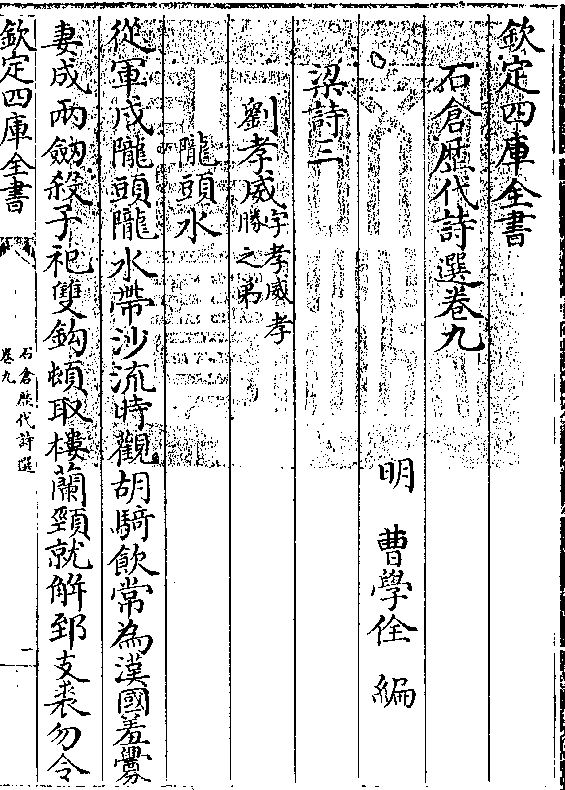 欽定四庫全書
石倉歴代詩選卷九
明 曹學佺 編
梁詩三
劉孝威 字孝威孝
勝之弟
隴頭水
從軍戍隴頭隴水帶沙流時觀胡騎飲常為漢國羞釁
妻成兩劔殺子祀雙鈎頓取樓蘭頸就解郅支裘勿令
欽定四庫全書
石倉歴代詩選
卷九
一